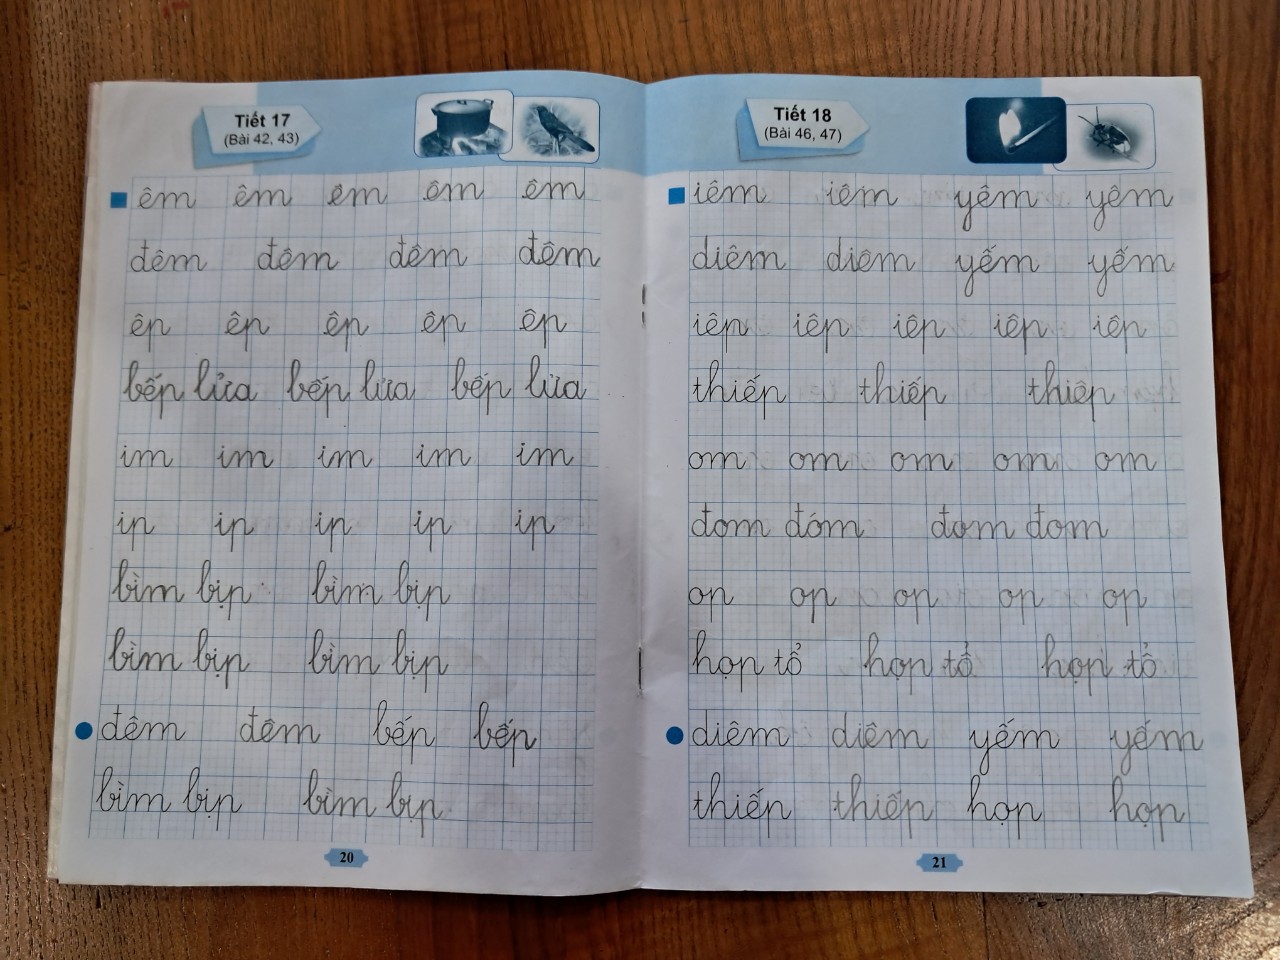 Tiết 17
(Bài 42, 43)
êm êm em om êm
đêm đêm đêm đêm
êp êp êp êp êp
bếp lửa bếp lửa bếp lửa
im im im im im
ip ip ip ip ip
bìm bịp bìm bịp
bìm bịp bìm bịp
đêm đêm bếp bếp
bìm bịp bìm bịp
20
Tiết 18
(Bài 46, 47)
iêm iêm yêm yêm
diêm diêm yếm yếm
iêp iêp iêp iêp iêp
thiếp thiếp thiêp
om om om om om
đom đóm đom đom
op op op op op
họp tổ họp tổ họp tổ
diêm diêm yếm yếm
thiếp thiếp họp họp
21